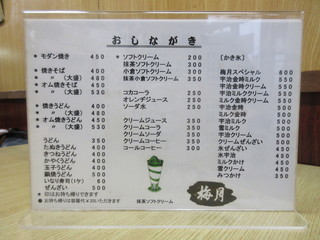 おしながき
* モダン焼き 450
* 焼きそば 400
* 〃 (大盛) 480
* オム焼きそば 450
* 〃 (大盛) 530
* 焼きうどん 400
* 〃 (大盛) 480
* オム焼きうどん 450
* 〃 (大盛) 530
うどん 350
たぬきうどん 400
きつねうどん 400
かやくうどん 400
玉子うどん 400
鍋焼うどん 600
いなり寿司(1ケ) 60
ぜんざい 500
*印はお持ち帰りできます
●お持ち帰り容器代¥20いただきます
* ソフトクリーム 200
抹茶ソフトクリーム 300
小倉ソフトクリーム 300
抹茶小倉ソフトクリーム 350
コカコーラ 200
オレンジジュース 200
ソーダ水 250
クリームジュース 350
クリームコーラ 350
クリームソーダ 350
クリームコーヒー 350
コールコーヒー 300
抹茶ソフトクリーム
[かき氷]
梅月スペシャル 600
宇治金時ミルククリーム
宇治金時ミルク
宇治金時クリーム
宇治ミルククリーム
ミルク金時クリーム
宇治金時
ミルク金時
宇治ミルク
雪ミルク
宇治クリーム
クリームぜんざい
氷ぜんざい
氷宇治
ミルクかけ
雪クリーム
みつかけ
梅月